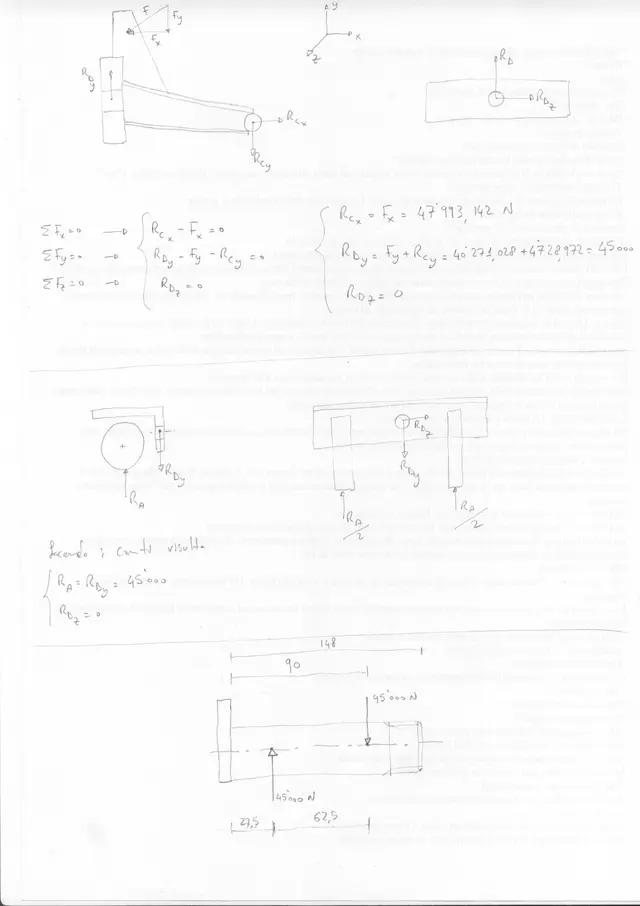 F
Fy
Fx
y
x
z
RDy
RCx
RCy
RD
RDz
ΣFx=0 → RCx - Fx = 0
ΣFy=0 → RDy - Fy - RCy = 0
ΣFz=0 → RDz = 0
RCx = Fx = 47'993,142 N
RDy = Fy + RCy = 40'271,028 + 4'728,972 = 45'000
RDz = 0
RA
RDy
RDz
RDy
RA/2
RA/2
facendo i conti risulta
RA = RDy = 45'000
RDz = 0
148
90
45'000 N
45'000 N
27,5
62,5